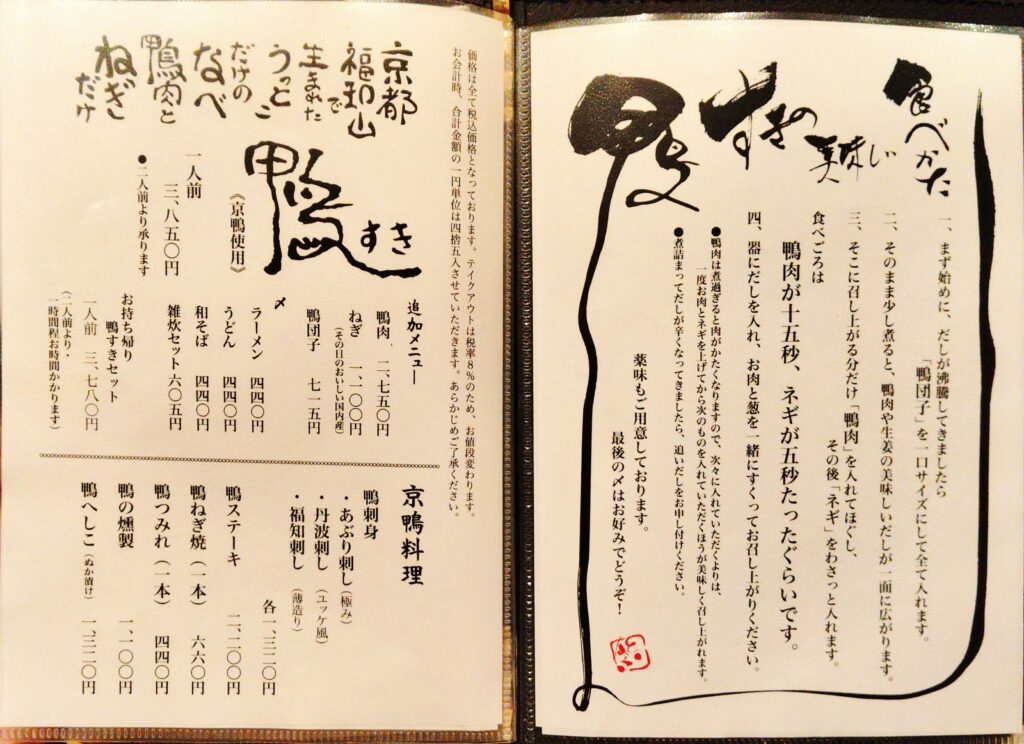 食べかた
鴨すきの美味しい
一、まず始めに、だしが沸騰してきましたら
「鴨団子」を一口サイズにして全て入れます。
二、そのまま少し煮ると、鴨肉や生姜の美味しいだしが一面に広がります。
三、そこに召し上がる分だけ「鴨肉」を入れてほぐし、
その後「ネギ」をわさっと入れます。
食べごろは
鴨肉が十五秒、ネギが五秒たったぐらいです。
四、器にだしを入れ、お肉と葱を一緒にすくってお召し上がりください。
●鴨肉は煮過ぎると肉がかたくなりますので、次々に入れていただくよりは、
一度お肉とネギを上げてから次のものを入れていただくほうが美味しく召し上がれます。
●煮詰まってだしが辛くなってきましたら、追いだしをお申し付けください。
薬味もご用意しております。
最後の〆はお好みでどうぞ!
価格は全て税込価格となっております。テイクアウトは税率8%のため、お値段変わります。
お会計時、合計金額の一円単位は四捨五入させていただきます。あらかじめご了承ください。
京都
福知山
で
生まれた
うっとこ
だけの
なべ
鴨肉と
ねぎ
だけ
鴨すき
《京鴨使用》
一人前
三、八五〇円
●二人前より承ります
追加メニュー
鴨肉 二、七五〇円
ねぎ 一、一〇〇円
(その日のおいしい国内産)
鴨団子 七一五円
〆
ラーメン 四四〇円
うどん 四四〇円
和そば 四四〇円
雑炊セット 六〇五円
お持ち帰り
鴨すきセット
一人前 三、七八〇円
(二人前より・
一時間程お時間かかります)
京鴨料理
鴨刺身
・あぶり刺し(極み)
・丹波刺し(ユッケ風)
・福知刺し(薄造り)
各一、三二〇円
鴨ステーキ 二、二〇〇円
鴨ねぎ焼(一本) 六六〇円
鴨つみれ(一本) 四四〇円
鴨の燻製 一、一〇〇円
鴨へしこ(ぬか漬け) 一、三二〇円